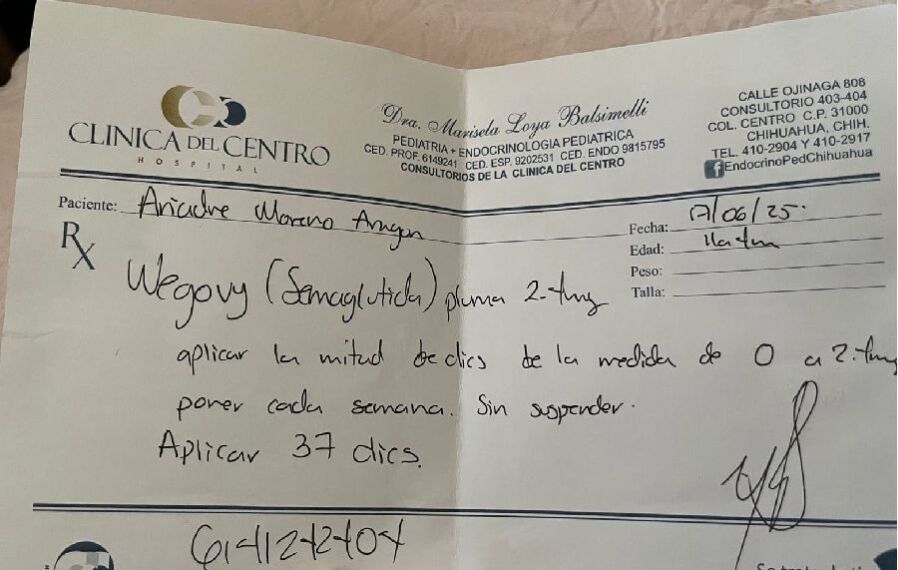 CLINICA DEL CENTRO
HOSPITAL
Dra. Marisela Loya Balsimelli
PEDIATRIA + ENDOCRINOLOGIA PEDIATRICA
CED. PROF. 6149241 CED. ESP. 9202531 CED. ENDO 9815795
CONSULTORIOS DE LA CLINICA DEL CENTRO
CALLE OJINAGA 808
CONSULTORIO 403-404
COL. CENTRO C.P. 31000
CHIHUAHUA, CHIH.
TEL. 410-2904 Y 410-2917
EndocrinoPedChihuahua
Paciente: Ariadne Moreno Aragon
Fecha: 17/06/25.
Edad:
Peso:
Talla:
Rx
Wegovy (Semaglutida) pluma 2.4mg
aplicar la mitad de clics de la medida de 0 a 2.4mg
poner cada semana. Sin suspender.
Aplicar 37 clics.